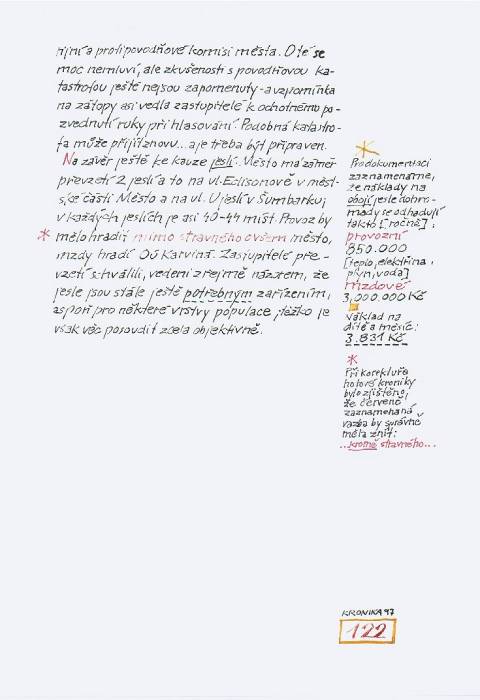 a protipovodňové komisi města. O té se
moc nemluví, ale zkušenosti s povodňovou ka-
tastrofou ještě nejsou zapomenuty - a vzpomínka
na zátopy asi vedla zastupitele k ochotnému po-
zvednutí ruky při hlasování. Podobná katastro-
fa může přijít znovu... a je třeba být připraven.
Na závěr ještě ke kauze jeslí. Město má záměr
převzetí 2 jeslí a to na ul. Edisonově v měst-
ské části Město a na ul. U jeslí v Šumbarku;
v každých jeslích je asi 40-44 míst. Provoz by
* mělo hradit mimo stravného ovšem město,
mzdy hradí OÚ Karviná. Zastupitelé pře-
vzetí schválili, vedeni zřejmě názorem, že
jesle jsou stále ještě potřebným zařízením,
aspoň pro některé vrstvy populace; těžko je
však věc posoudit zcela objektivně.
Pro dokumentaci
zaznamenáme,
že náklady na
obojí jesle dohro-
mady se odhadují
takto [ročně]:
provozní
850.000
[teplo, elektřina,
plyn, voda]
mzdové
3,000.000 Kč
Náklad na
dítě a měsíc:
3.831 Kč
*
Při korektuře
hotové kroniky
bylo zjištěno,
že červeně
zaznamenaná
vazba by správně
měla znít:
...kromě stravného...
KRONIKA 97
122